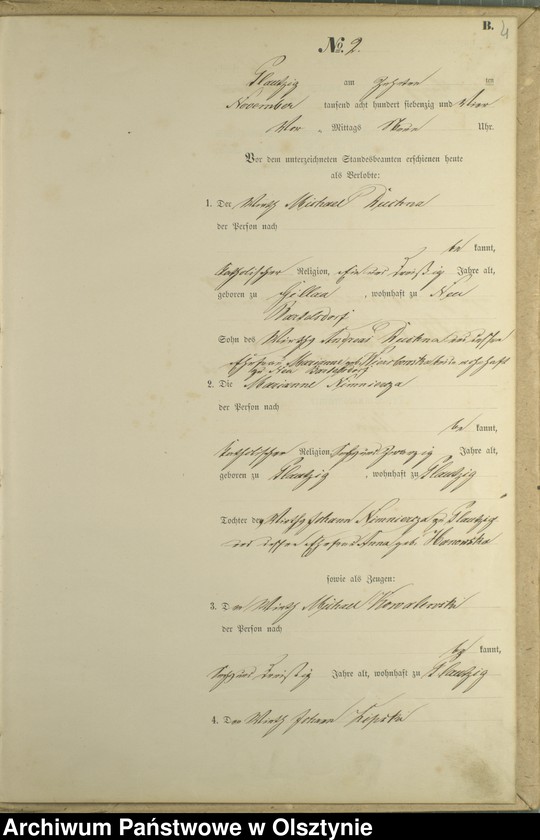 B.
4
No. 2.
Plautzig am Zehnten ten
November tausend acht hundert siebenzig und vier
Vor Mittags Neun Uhr.
Vor dem unterzeichneten Standesbeamten erschienen heute
als Verlobte:
1. Der Wirth Michael
der Person nach
be kannt,
katholischer Religion, ein und dreißig Jahre alt,
geboren zu Gillau, wohnhaft zu Neu
Bartelsdorf
Sohn des Wirths Andreas und dessen
Ehefrau Marianne geb. beide wohnhaft
zu Neu Bartelsdorf
2. Die Marianne
der Person nach
be kannt,
katholischer Religion, sechs und zwanzig Jahre alt,
geboren zu Plautzig, wohnhaft zu Plautzig
Tochter des Wirths Johann zu Plautzig
und dessen Ehefrau Anna geb.
sowie als Zeugen:
3. Der Wirth Michael Kowalewski
der Person nach
be kannt,
sechs und dreißig Jahre alt, wohnhaft zu Plautzig
4. Der Wirth Johann
Archiwum Państwowe w Olsztynie